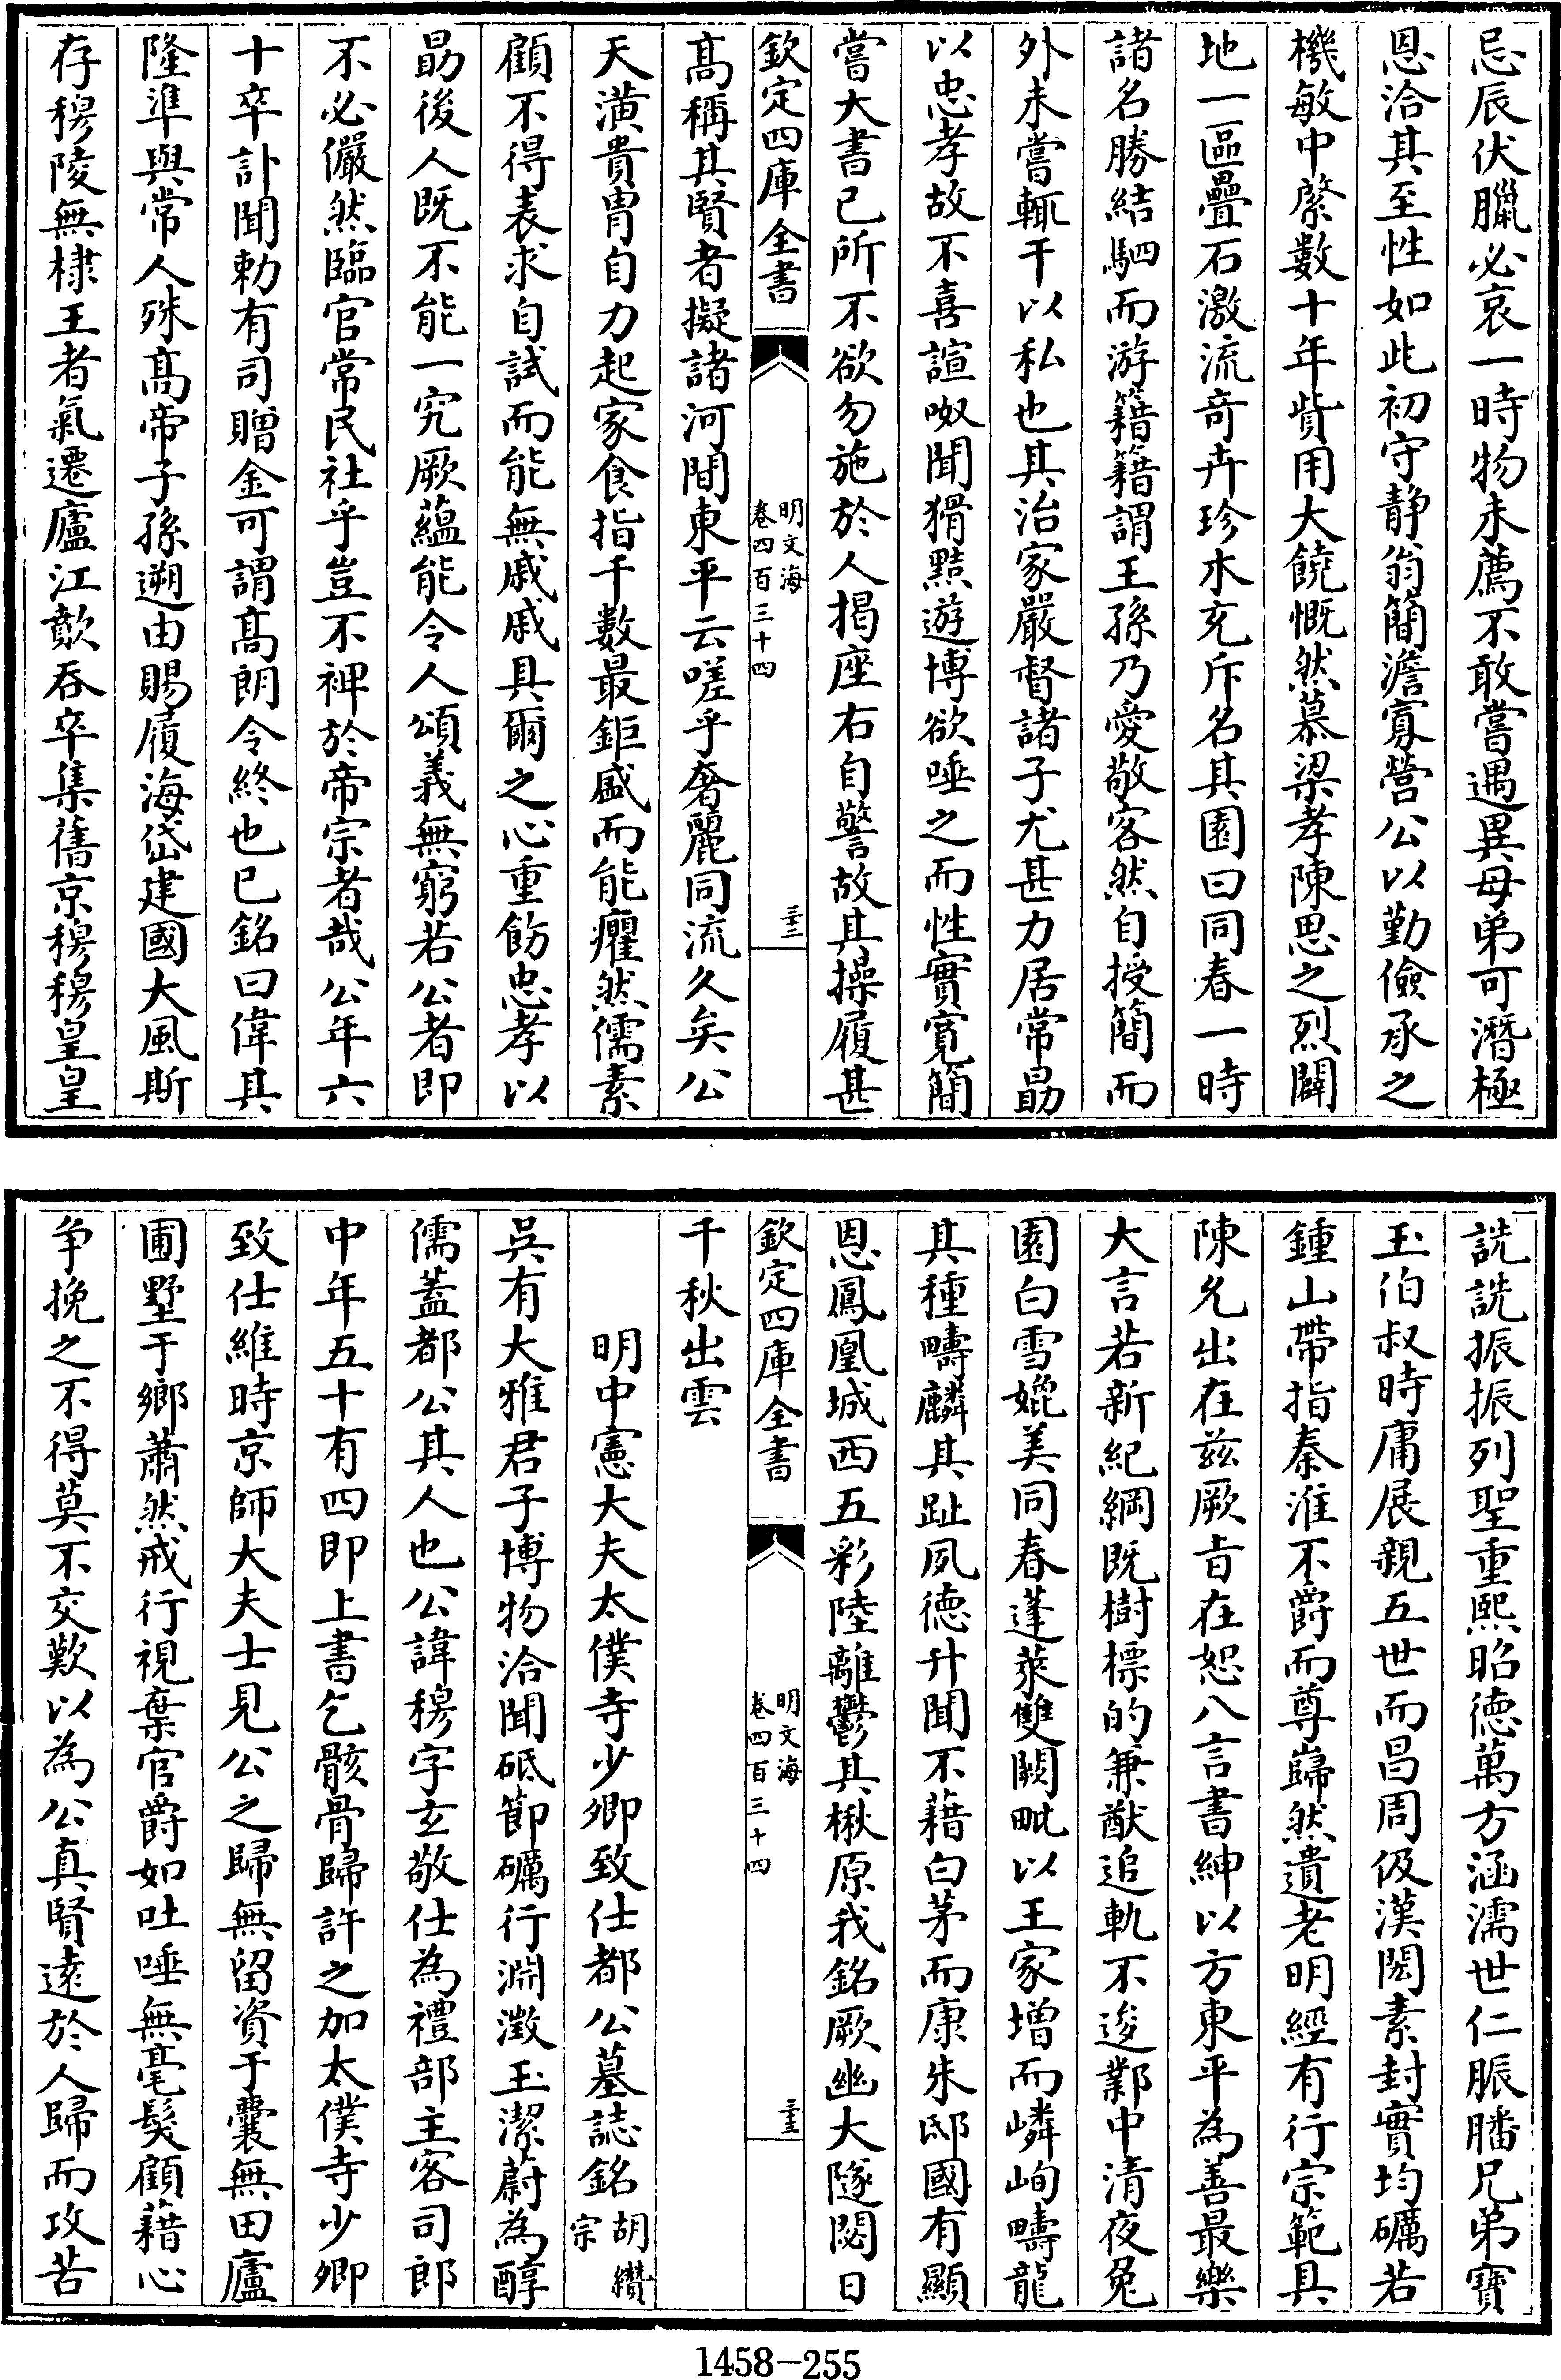 忌辰伏臘必哀一時物未薦不敢嘗遇異母弟可潛極
恩洽其至性如此初守静翁簡澹寡營公以勤儉承之
機敏中綮數十年貲用大饒慨然慕梁孝陳思之烈闢
地一區疊石激流竒卉珍木充斥名其園曰同春一時
諸名勝結駟而游籍籍謂王孫乃愛敬客然自授簡而
外未嘗輒干以私也其治家嚴督諸子尤甚力居常勗
以忠孝故不喜諠呶聞猾黠遊博欲唾之而性實寛簡
嘗大書已所不欲勿施於人揭座右自警故其操履甚
欽定四庫全書
明文海
卷四百三十四
三三
髙稱其賢者擬諸河間東平云嗟乎奢麗同流久矣公
天潢貴胄自力起家食指千數最鉅盛而能癯然儒素
顧不得表求自試而能無戚戚具爾之心重飭忠孝以
勗後人既不能一究厥蘊能令人頌義無窮若公者即
不必儼然臨官常民社乎豈不裨於帝宗者哉公年六
十卒訃聞勅有司贈金可謂髙朗令終也已銘曰偉其
隆準與常人殊髙帝子孫遡由賜履海岱建國大風斯
存穆陵無棣王者氣遷廬江歕呑卒集舊京穆穆皇皇
詵詵振振列聖重熙昭徳萬方涵濡世仁脤膰兄弟寶
玉伯叔時庸展親五世而昌周伋漢閎素封實均礪若
鍾山帶指秦淮不爵而尊巋然遺老明經有行宗範具
陳允出在兹厥㫖在恕八言書紳以方東平為善最樂
大言若新紀綱既樹標的兼猷追軌不逡鄴中清夜兔
園白雪媲美同春蓬萊雙闕毗以王家增而嶙峋疇龍
其種疇麟其趾夙徳升聞不藉白茅而康朱邸國有顯
恩鳳凰城西五彩陸離鬱其楸原我銘厥幽大隧閟日
欽定四庫全書
明文海
卷四百三十四
三五
千秋出雲
明中憲大夫太僕寺少卿致仕都公墓誌銘 胡纘宗
吳有大雅君子博物洽聞砥節礪行淵澂玉潔蔚為醇
儒蓋都公其人也公諱穆字玄敬仕為禮部主客司郎
中年五十有四即上書乞骸骨歸許之加太僕寺少卿
致仕維時京師大夫士見公之歸無留資于囊無田廬
圃墅于鄉蕭然戒行視棄官爵如吐唾無毫髪顧藉心
争挽之不得莫不交歎以為公真賢逺於人歸而攻苦
1458-255